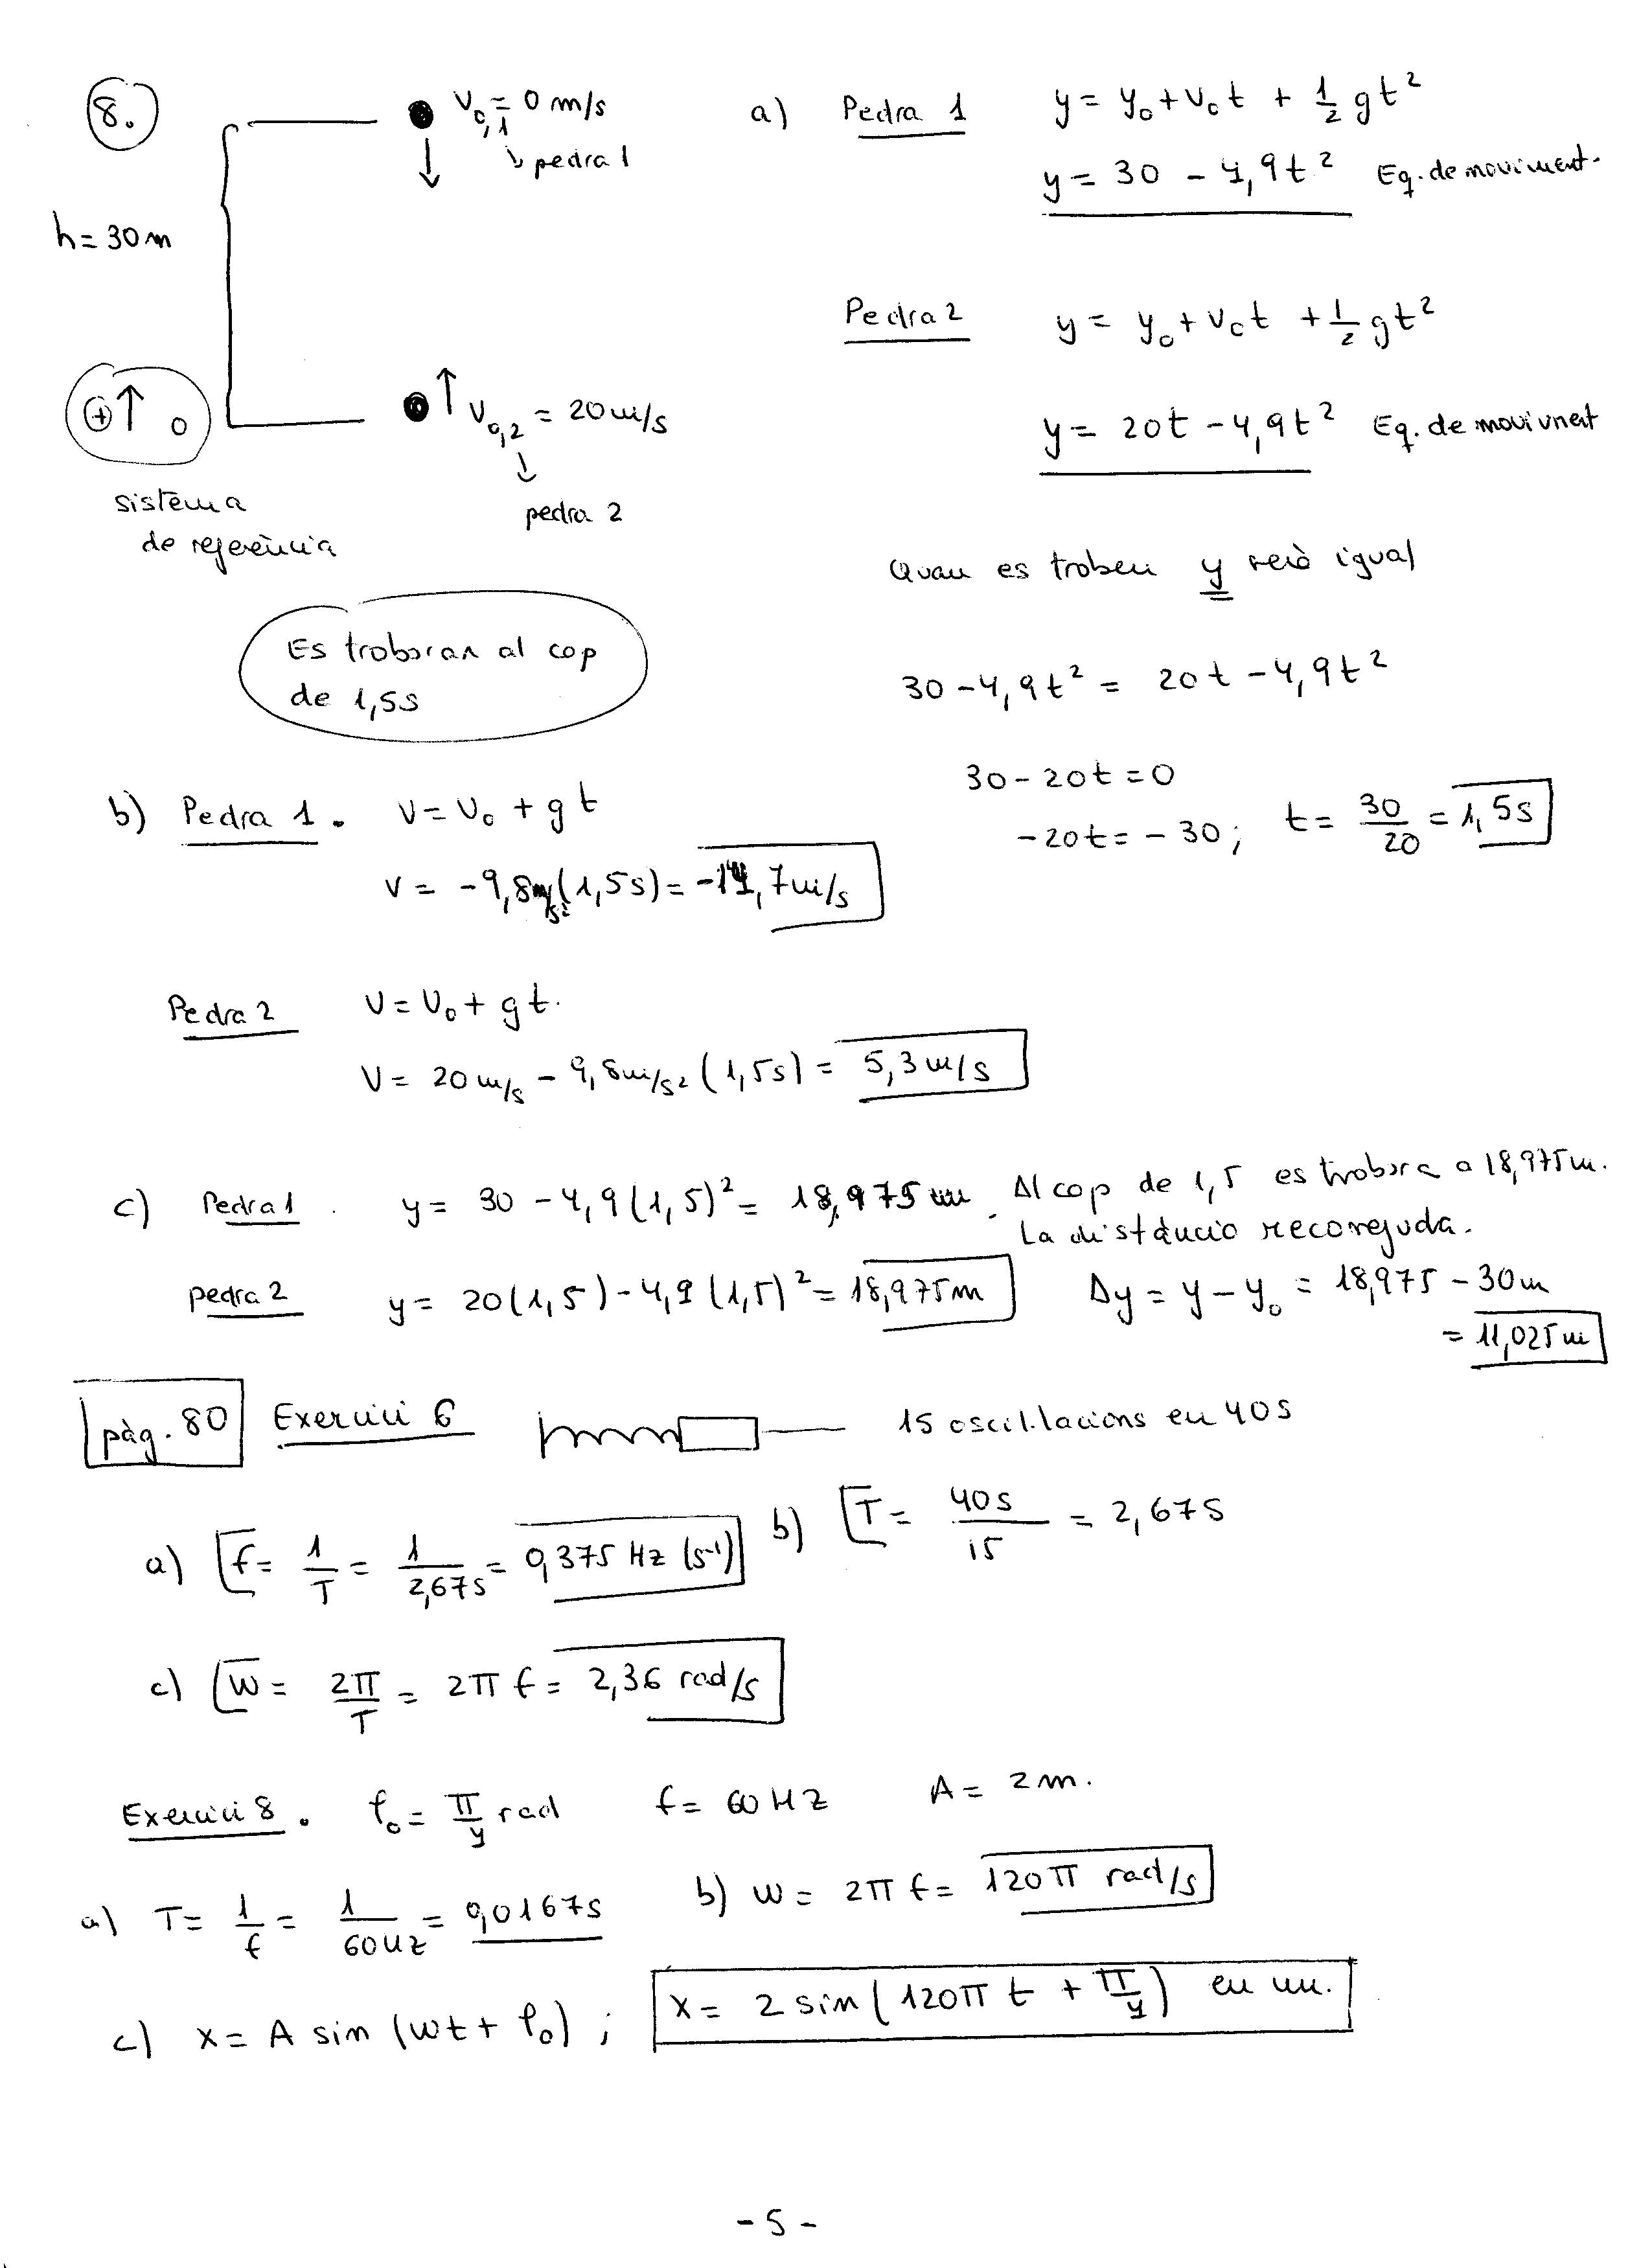 8.
V₀,₁ = 0 m/s
↳ pedra 1
h = 30 m
⊕↑ 0
V₀,₂ = 20 m/s
↓
pedra 2
sistema
de referència
a) Pedra 1 y = y₀ + v₀t + 1/2 gt²
y = 30 - 4,9t² Eq. de moviment.
Pedra 2 y = y₀ + v₀t + 1/2 gt²
y = 20t - 4,9t² Eq. de moviment
Quan es troben y serà igual
30 - 4,9t² = 20t - 4,9t²
30 - 20t = 0
-20t = -30; t = 30/20 = 1,5s
Es troboran al cop
de 1,5s
b) Pedra 1. V = V₀ + gt
V = -9,8m/s² (1,5s) = -14,7 m/s
Pedra 2 V = V₀ + gt.
V = 20 m/s - 9,8 m/s² (1,5s) = 5,3 m/s
c) Pedra 1. y = 30 - 4,9(1,5)² = 18,975 m. Al cop de 1,5 es trobara a 18,975 m.
La distància recorreguda.
Pedra 2 y = 20(1,5) - 4,9(1,5)² = 18,975 m Δy = y - y₀ = 18,975 - 30m
= 11,025 m
pàg. 80 Exercici 6 15 oscil.lacions en 40s
a) f = 1/T = 1/2,67s = 0,375 Hz (s⁻¹) b) T = 40s/15 = 2,67s
c) W = 2π/T = 2π f = 2,36 rad/s
Exercici 8. φ₀ = π/4 rad f = 60 Hz A = 2 m.
a) T = 1/f = 1/60Hz = 0,0167s b) w = 2π f = 120π rad/s
c) x = A sin (wt + φ₀); x = 2 sin (120π t + π/4) en m.
- 5 -